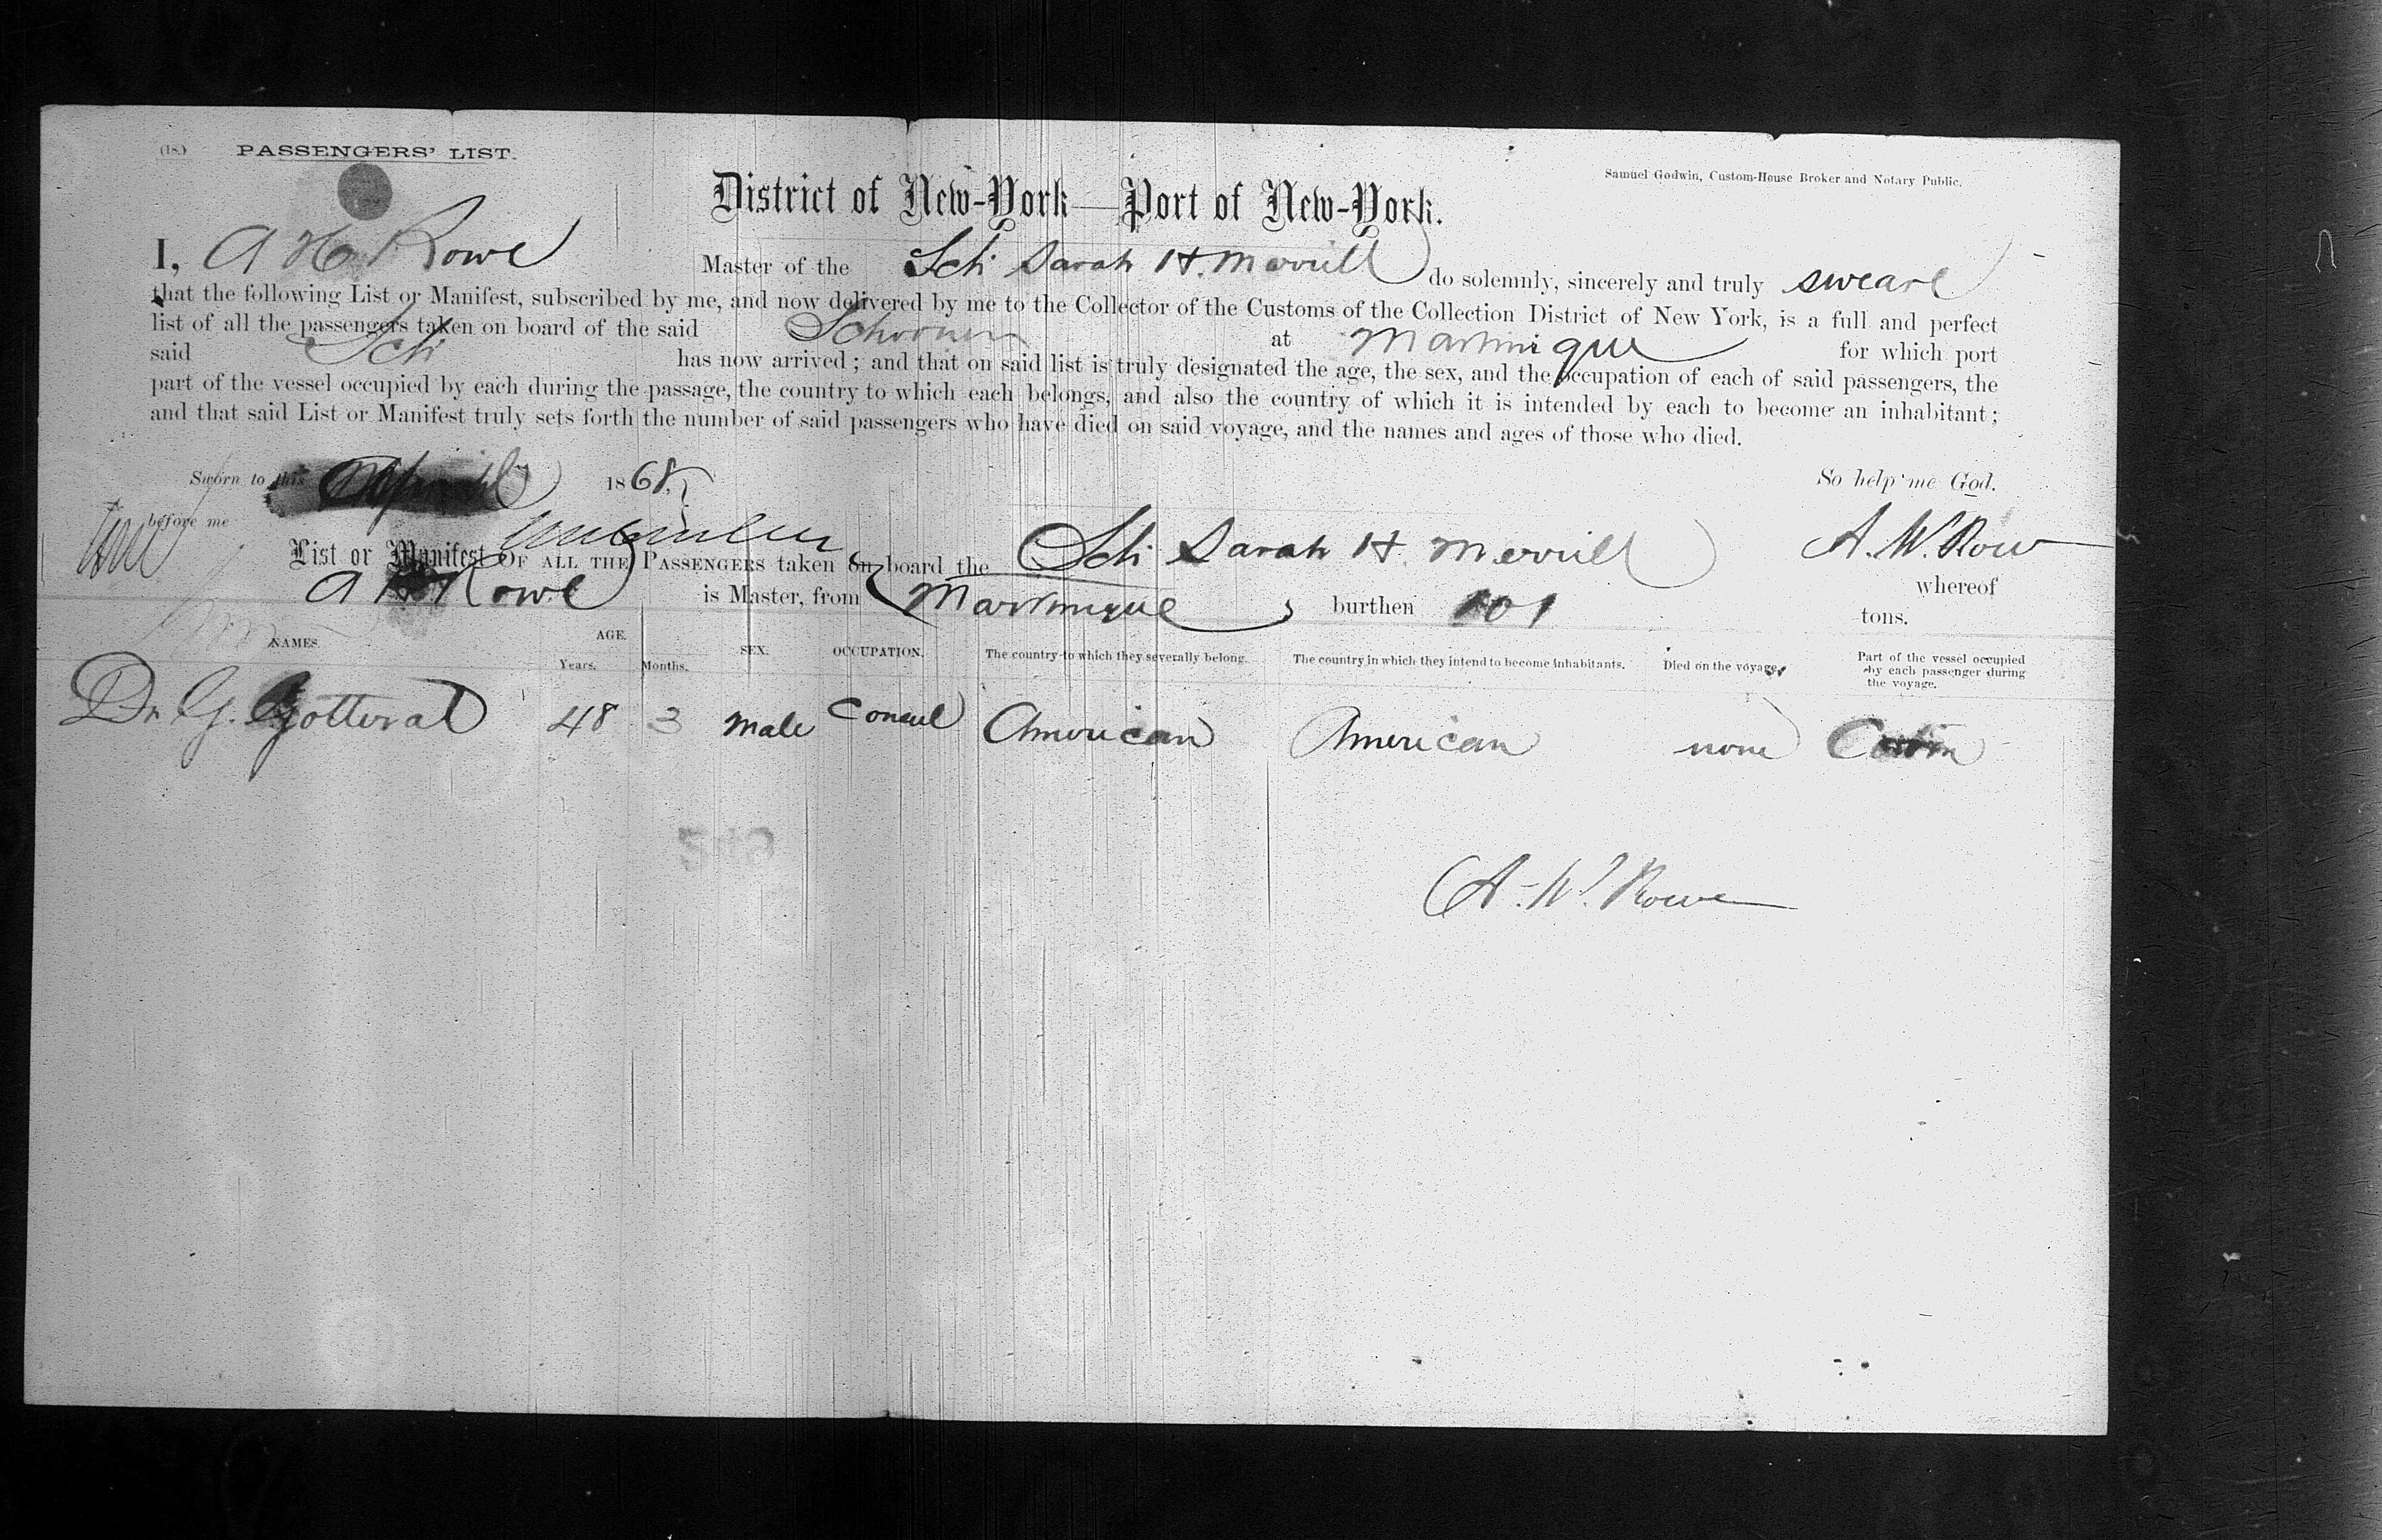 (18.) PASSENGERS' LIST.
Samuel Godwin, Custom-House Broker and Notary Public.
District of New-York—Port of New-York.
I, A H Rowe Master of the Sch Sarah H. Merrill do solemnly, sincerely and truly sweare
that the following List or Manifest, subscribed by me, and now delivered by me to the Collector of the Customs of the Collection District of New York, is a full and perfect
list of all the passengers taken on board of the said Schooner at Martinique for which port
said Sch has now arrived; and that on said list is truly designated the age, the sex, and the occupation of each of said passengers, the
part of the vessel occupied by each during the passage, the country to which each belongs, and also the country of which it is intended by each to become an inhabitant;
and that said List or Manifest truly sets forth the number of said passengers who have died on said voyage, and the names and ages of those who died.
Sworn to this 1868, So help me God.
before me
A. W. Row
List or Manifest OF ALL THE PASSENGERS taken on board the Sch Sarah H. Merrill whereof
A H Rowe is Master, from Martinique, burthen 101 tons.
NAMES. AGE. Years. Months. SEX. OCCUPATION. The country to which they severally belong. The country in which they intend to become inhabitants. Died on the voyage. Part of the vessel occupied by each passenger during the voyage.
Dr G. Gotteral 48 3 male Consul American American none
A. W. Rowe